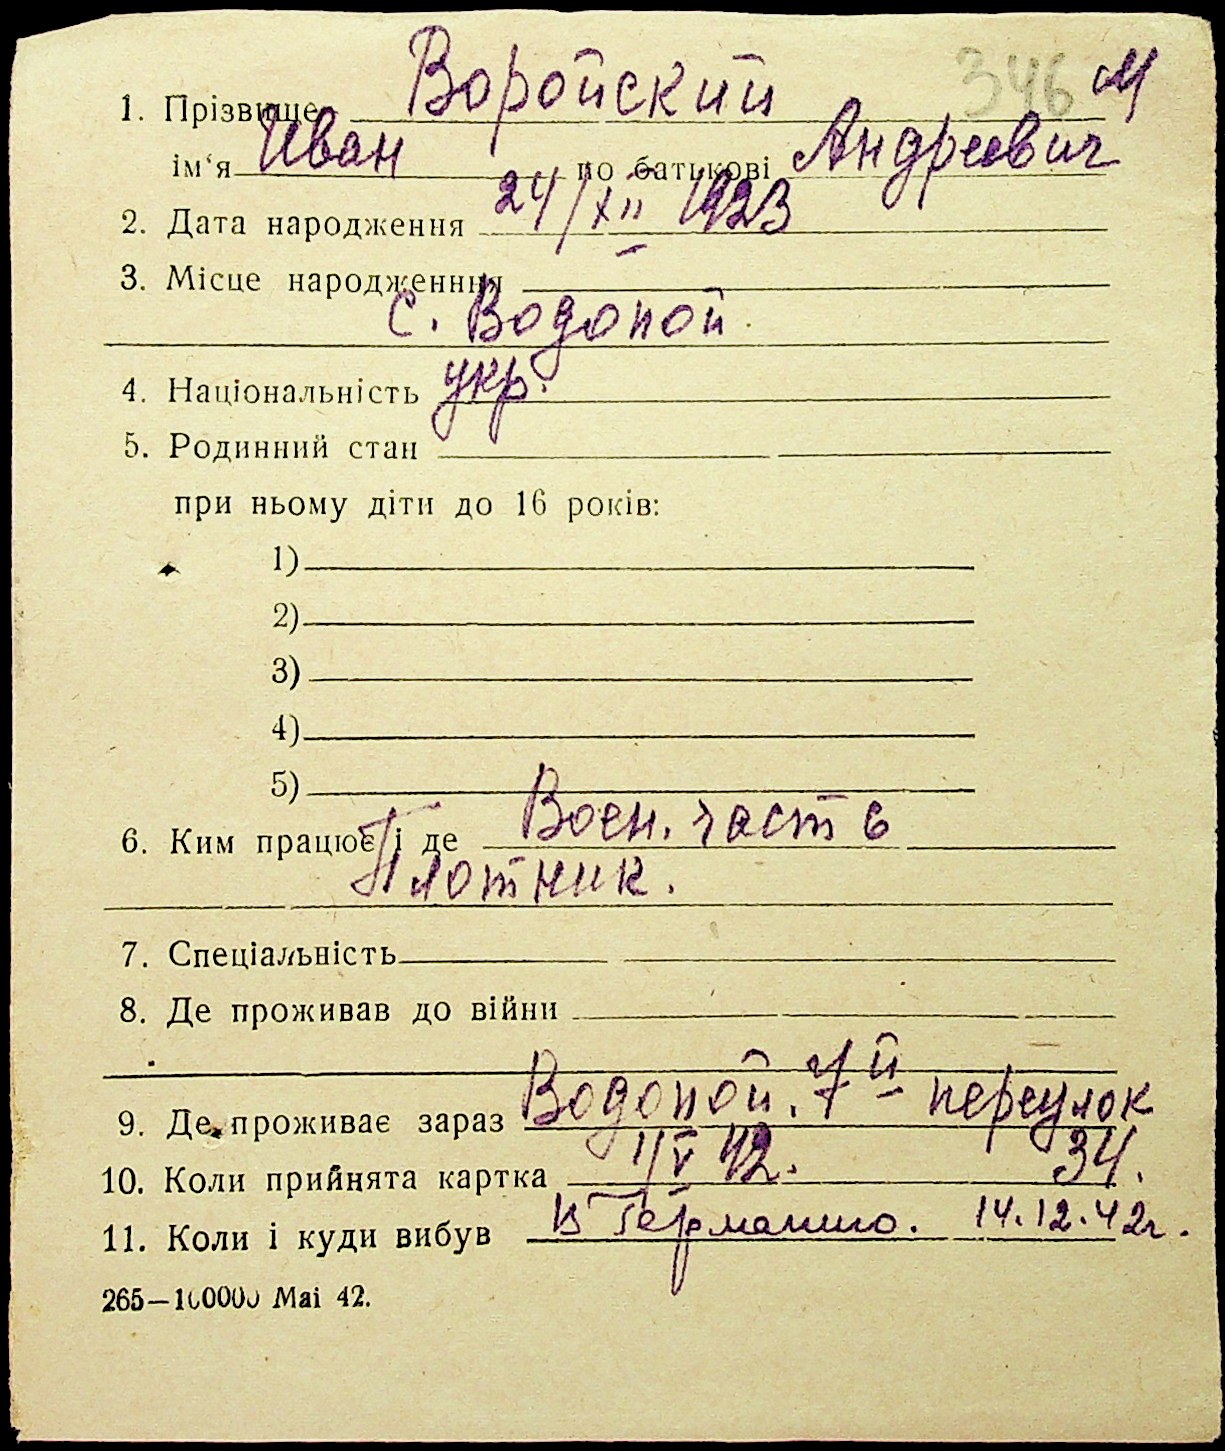 1. Прізвище Воройский 346 М
ім‘я Иван по батькові Андреевич
2. Дата народження 24/XII 1923
3. Місце народженння
с. Водопой
4. Національність укр.
5. Родинний стан
при ньому діти до 16 років:
1)
2)
3)
4)
5)
6. Ким працює і де Воен. часть
Плотник.
7. Спеціальність
8. Де проживав до війни
9. Де проживає зараз Водопой. 7й переулок
10. Коли прийнята картка 1/V 42. 34.
11. Коли і куди вибув в Германию. 14.12.42г.
265—100000 Mai 42.